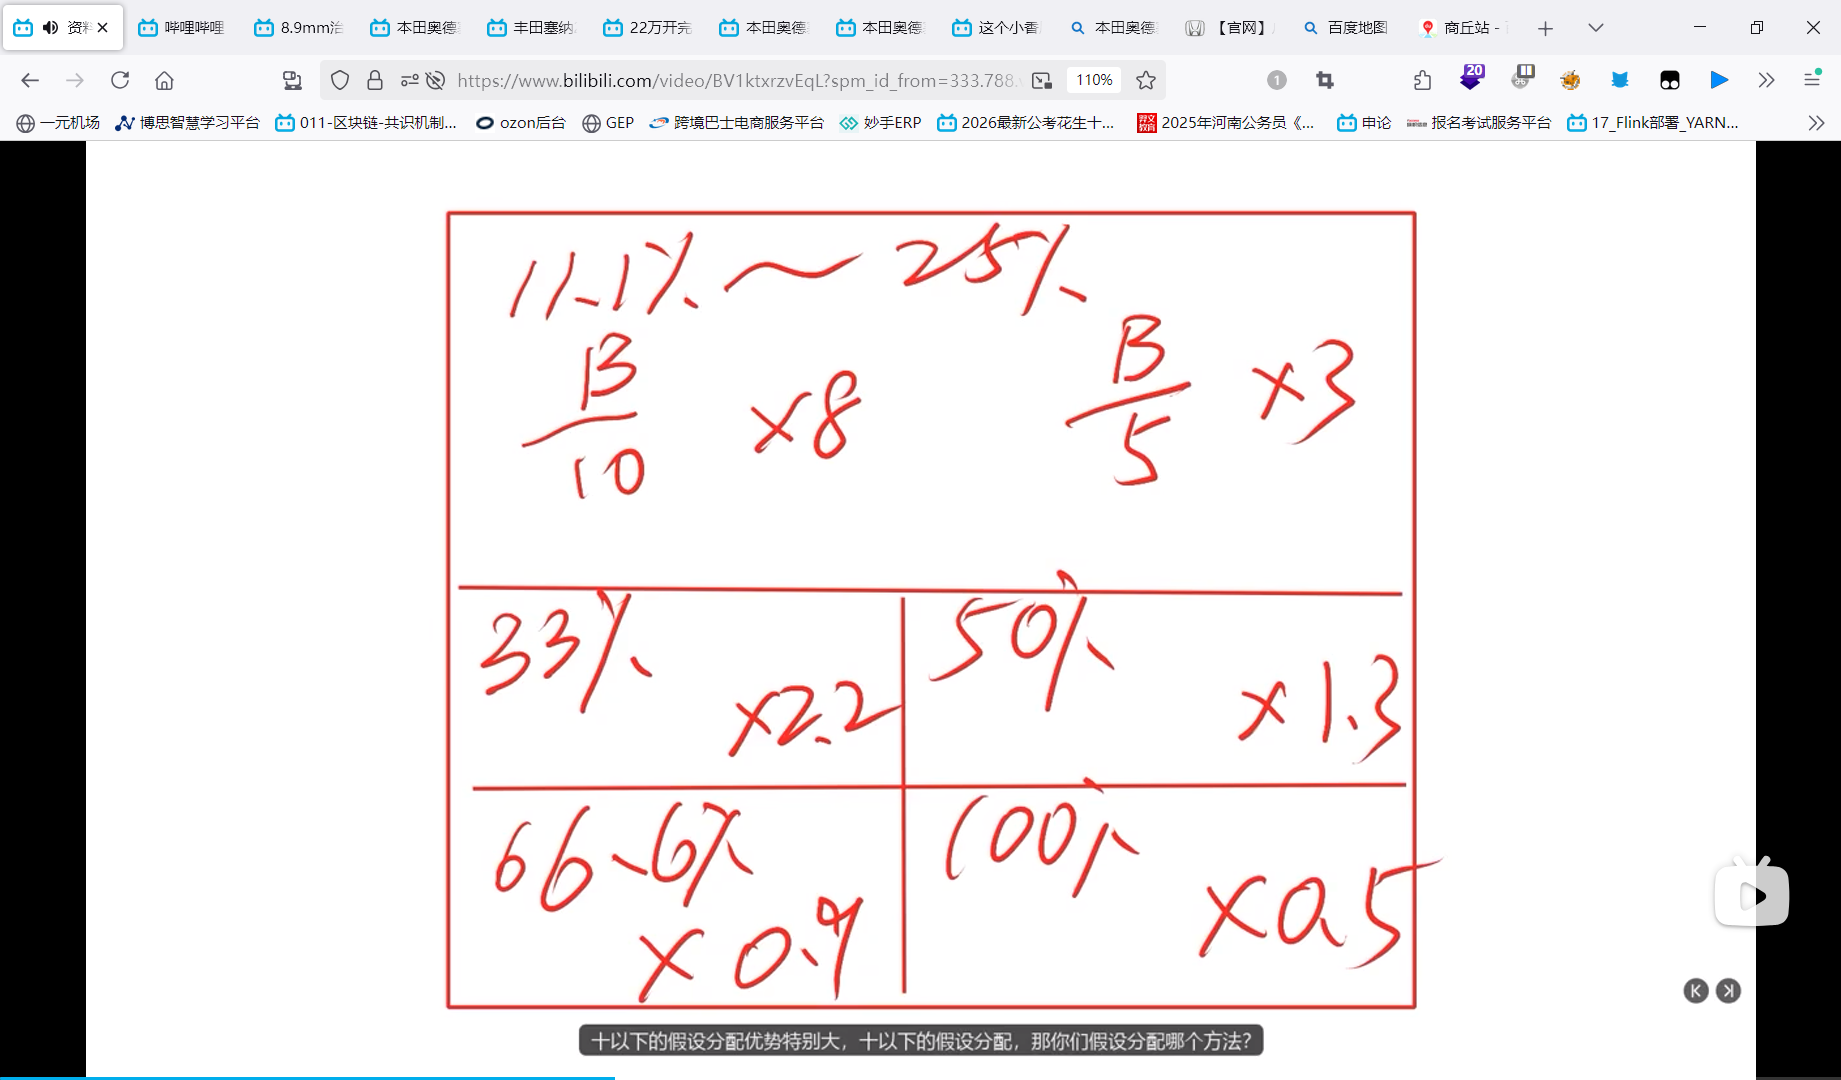 资料
哔哩哔哩
8.9mm治
本田奥德
丰田塞纳
22万开完
本田奥德
本田奥德
这个小香
本田奥德
【官网】
百度地图
商丘站 -
https://www.bilibili.com/video/BV1ktxrzvEqL?spm_id_from=333.788.
110%
1
20
一元机场
博思智慧学习平台
011-区块链-共识机制...
ozon后台
GEP
跨境巴士电商服务平台
妙手ERP
2026最新公考花生十...
2025年河南公务员《...
申论
报名考试服务平台
17_Flink部署_YARN...
11.1% ~ 25%
B/10 ×8 B/5 ×3
33% ×2.2
50% ×1.3
66.6% ×0.9
100% ×0.5
十以下的假设分配优势特别大，十以下的假设分配，那你们假设分配哪个方法？